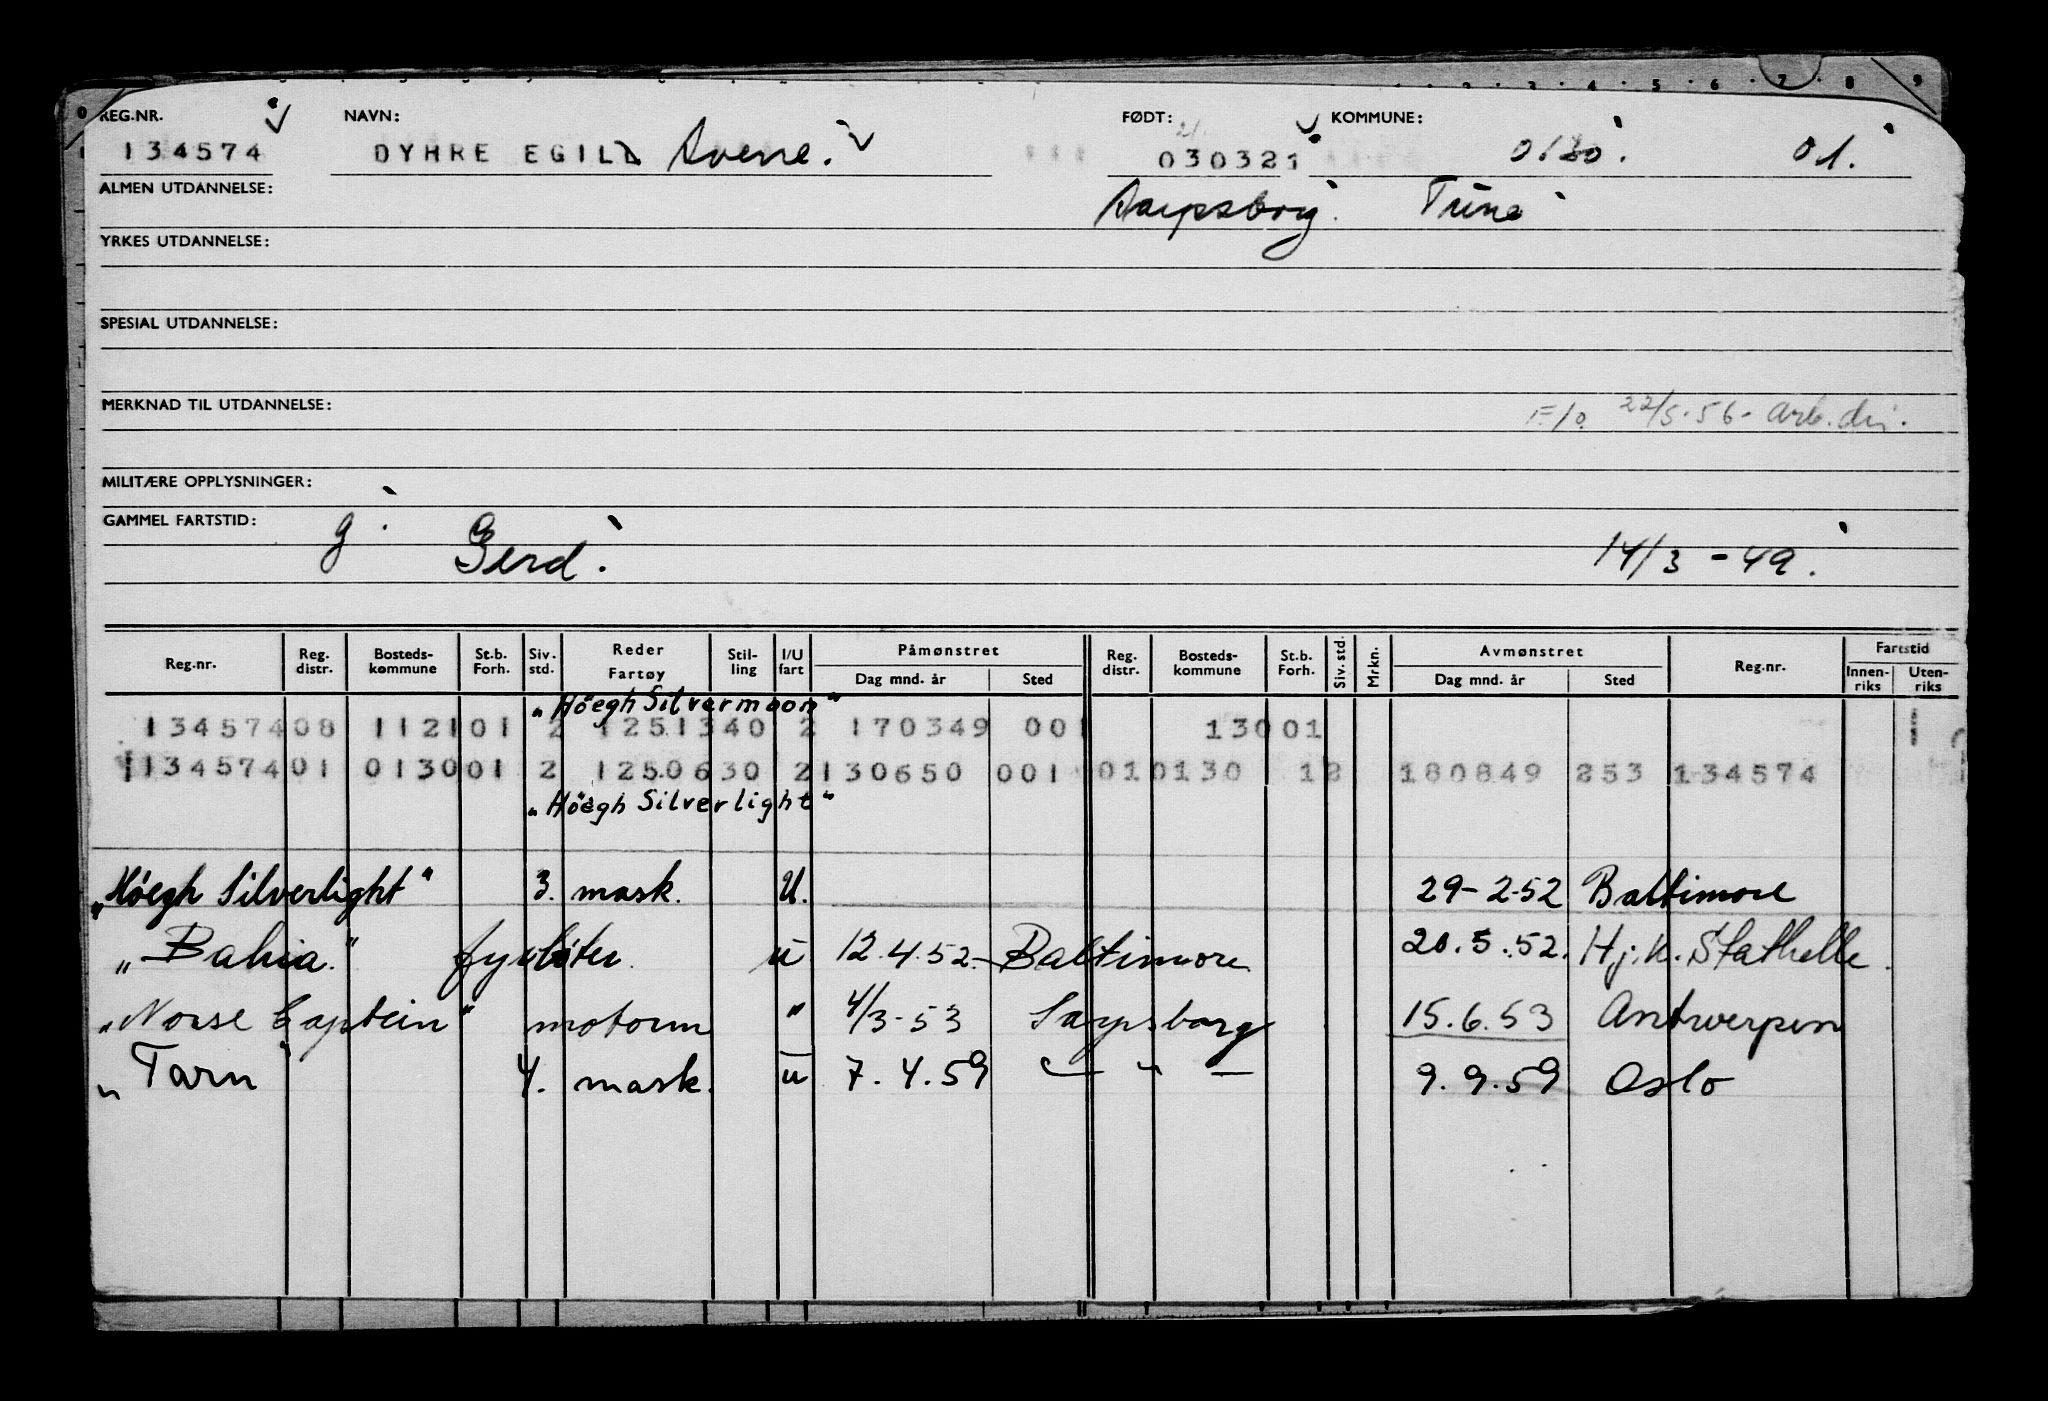 REG.NR. NAVN: FØDT: KOMMUNE:
134574 DYHRE EGIL Sverre. 030321 0130. 01.
ALMEN UTDANNELSE: Sarpsborg. Tune
YRKES UTDANNELSE:
SPESIAL UTDANNELSE:
MERKNAD TIL UTDANNELSE: F/o. 22/5-56- arb.dir.
MILITÆRE OPPLYSNINGER:
GAMMEL FARTSTID: g. Gerd. 14/3 - 49.
Reg.nr. Reg. distr. Bosteds-kommune St.b. Forh. Siv. std. Reder Fartøy Stil-ling I/U fart Påmønstret Dag mnd. år Sted Reg. distr. Bosteds-kommune St.b. Forh. Siv. std. Mrkn. Avmønstret Dag mnd. år Sted Reg.nr. Fartstid Innen-riks Uten-riks
„Höegh Silvermoon"
134574 08 1121 01 2 1251340 2 170349 001 130 01
134574 01 0130 01 2 1250630 2 130650 001 01 0130 12 180849 253 134574
„Höegh Silverlight"
„Höegh Silverlight" 3. mask. U. 29-2-52 Baltimore
„Bahia." fyrbøter. u 12.4.52. Baltimore 20.5.52. Hj.k. Stathelle.
„Norse Captein" motorm " 4/3-53 Sarpsborg 15.6.53 Antwerpen
„Tarn" 4. mask. u 7.4.59 — " — 9.9.59 Oslo